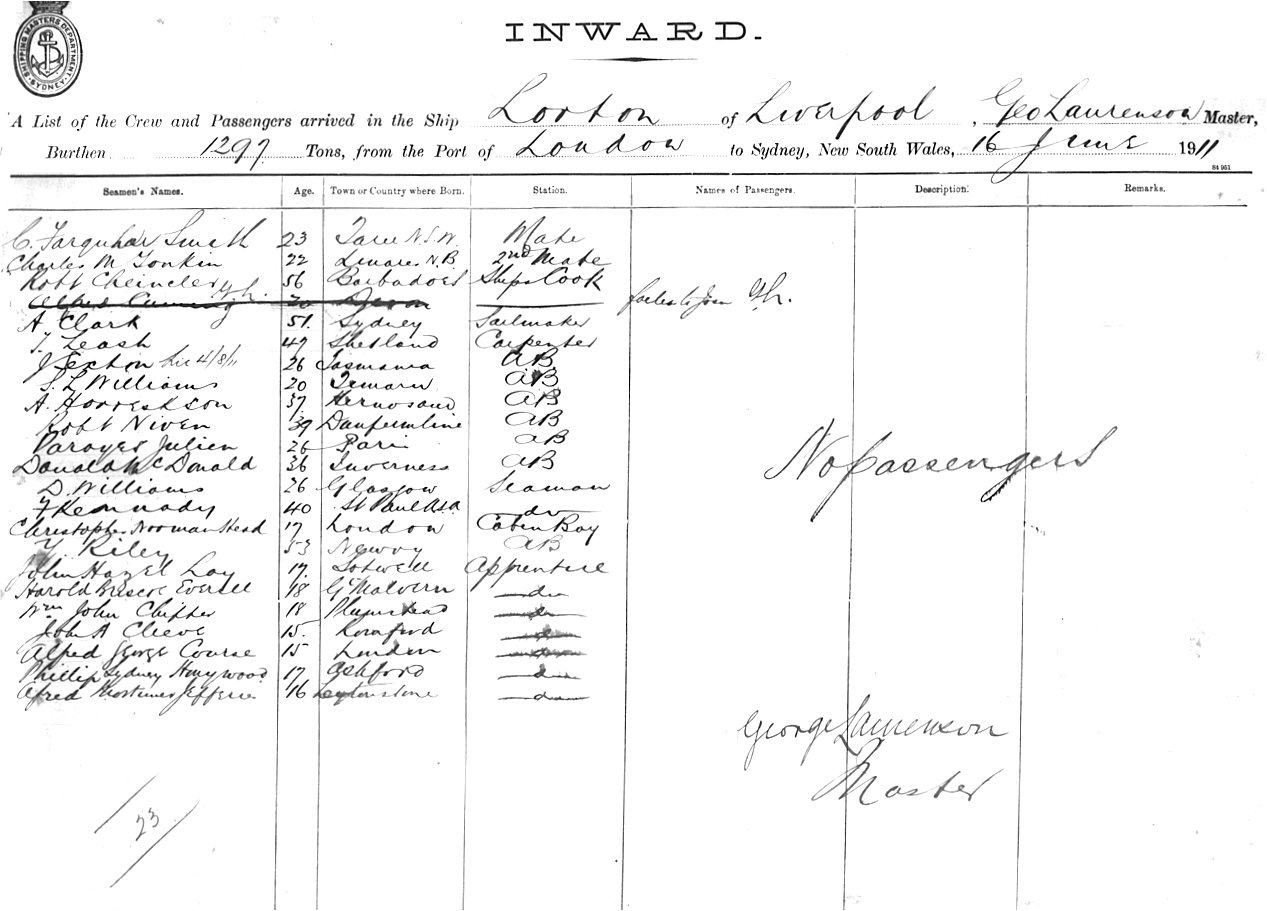 SHIPPING MASTERS DEPARTMENT. SYDNEY.
INWARD.
A List of the Crew and Passengers arrived in the Ship Lorton of Liverpool, Geo Laurenson Master,
Burthen 1297 Tons, from the Port of London to Sydney, New South Wales, 16 June 1911
84 951
Seamen's Names. Age. Town or Country where Born. Station. Names of Passengers. Description. Remarks.
C. Farquhar Smith 23 Taree N.S.W. Mate
Charles M Tonkin 22 N.B. 2nd Mate
Robt 56 Barbados Ships Cook
Alfred 20 Devon failed to join
A Clark 51. Sydney Sailmaker
T. Leask 47 Shetland Carpenter
J Sexton 4/8/11 26 Tasmania AB
S. L Williams 20 AB
A. 57 Hernosand AB
Robt Niven 39 Dunfermline AB
Julien 26 Paris AB
Donald Mc Donald 36 Inverness AB
D. Williams 26 Glasgow Seaman
F Kennady 40 St Paul do
Christopher Norman Head 17 London Cabin Boy
Riley 53 AB
John Hazel Lay 17. Sotwell Apprentice
Harold Briscoe Everall 18 Gt Malvern do
Wm John Chipper 18 Plumstead do
John A Cleeve 15. Romford do
Alfred George Course 15 London do
Phillip Sydney Honywood 17 Ashford do
Alfred Mortimer Jefferies 16 Leytonstone do
No passengers
George Laurenson
Master
23